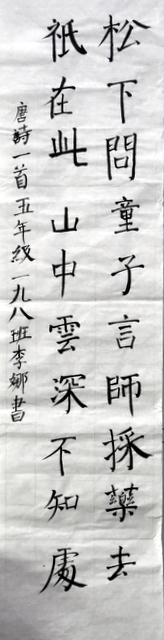 松下問童子言師採藥去
祇在此山中雲深不知處
唐詩一首五年級一九八班李娜書